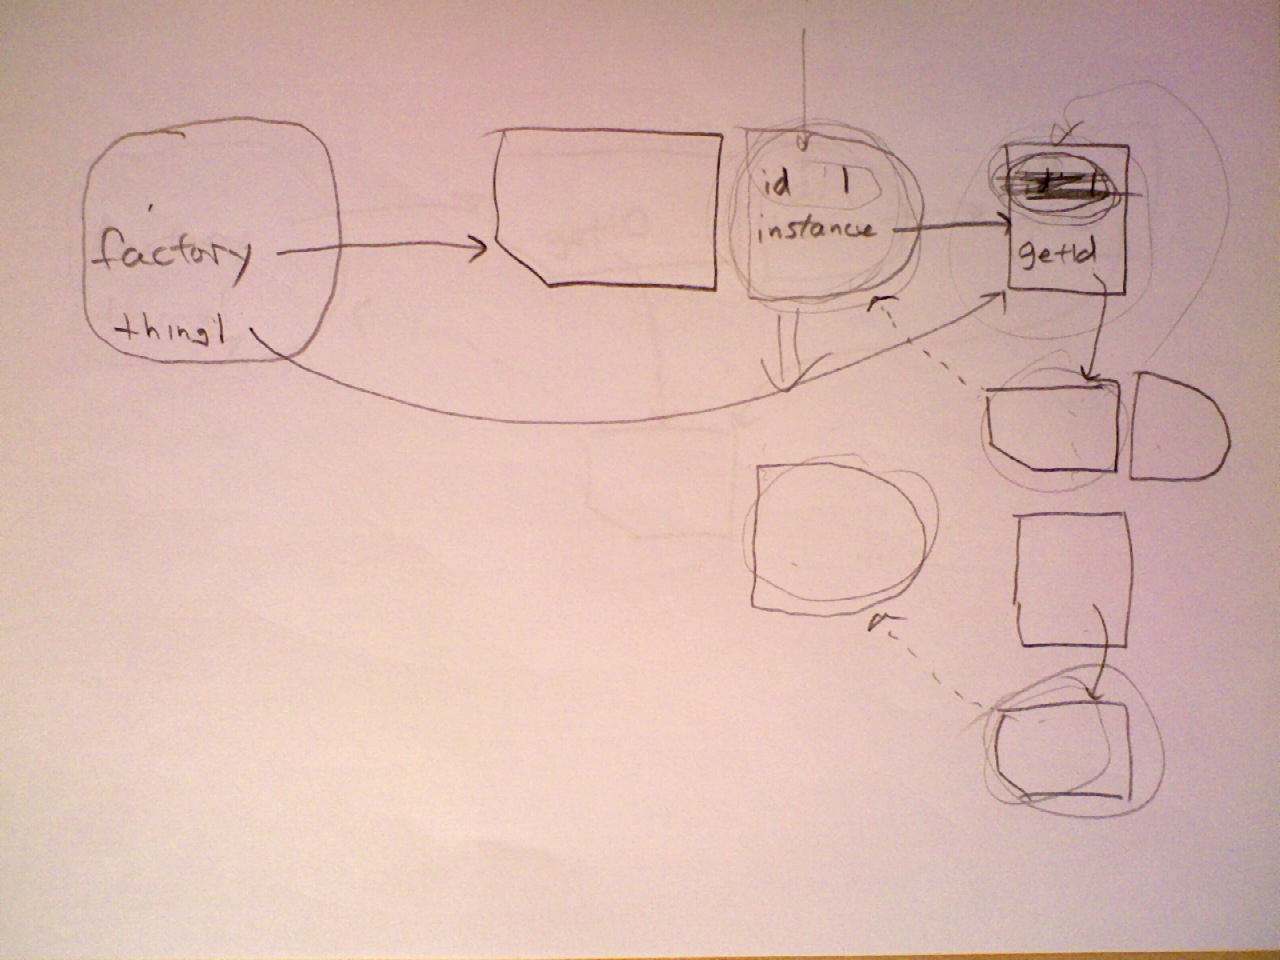 factory
thing1
id 1
instance
getId